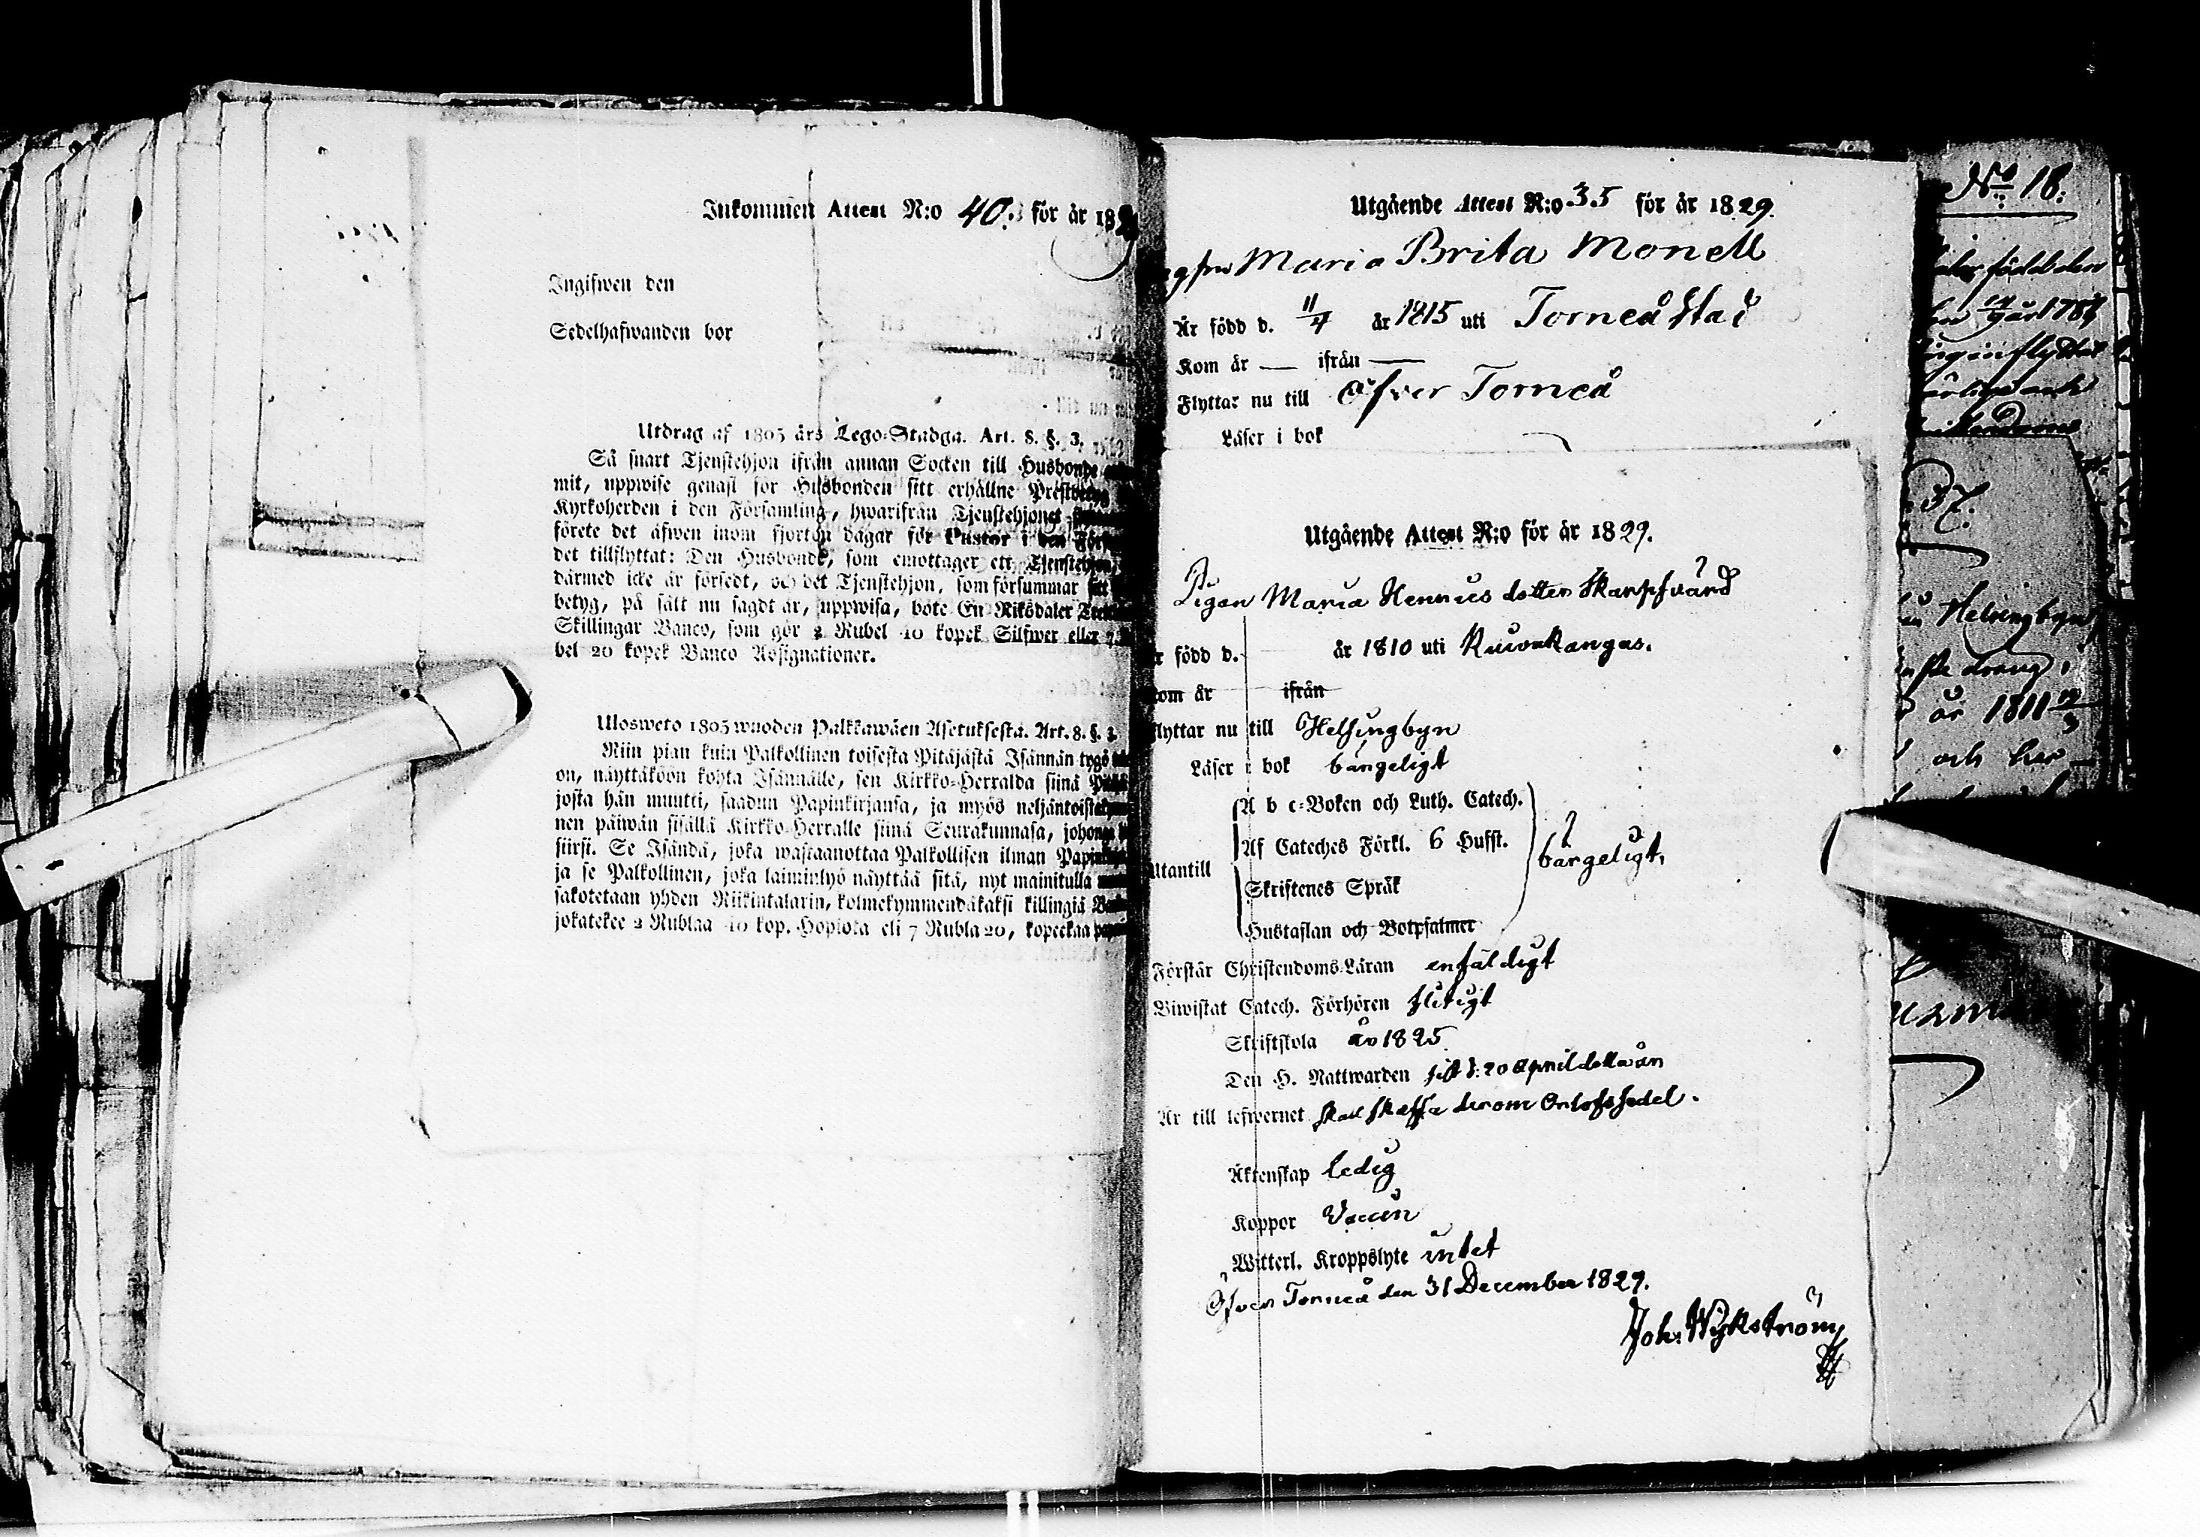 Inkommen Attest N:o 40. för år 18
Ingifwen den
Sedelhafwanden bor
Utdrag af 1805 års Lego-Stadga. Art. 8. §. 3.
Så snart Tjenstehjon ifrån annan Socken till Husbonde
mit, uppwise genast för Husbonden sitt erhållne Prestbetyg
Kyrkoherden i den Församling, hwarifrån Tjenstehjonet
förete det äfwen inom fjorton dagar för Pastor i den För
det tillflyttat: Den Husbonde, som emottager ett Tjenstehjon,
därmed icke är försedt, och det Tjenstehjon, som försummar sitt
betyg, på sätt nu sagdt är, uppwisa, böte En Riksdaler
Skillingar Banco, som gör 2 Rubel 40 kopek Silfwer eller 7
bel 20 kopek Banco Assignationer.
Ulosweto 1805 wuoden Palkkawäen Asetuksesta. Art. 8. §. 3.
Niin pian kuin Palkollinen toisesta Pitäjästä Isännän tygö
on, näyttäköön kohta Isännälle, sen Kirkko-Herralda siinä
josta hän muutti, saadun Papinkirjansa, ja myös neljäntoista
nen päiwän sisällä Kirkko-Herralle siinä Seurakunnasa, johonga
siirsi. Se Isändä, joka wastaanottaa Palkollisen ilman
ja se Palkollinen, joka laiminlyö näyttää sitä, nyt mainitulla
sakotetaan yhden Riikintalarin, kolmekymmendäkaksi killingiä
jokatekee 2 Rublaa 40 kop. Hopiota eli 7 Rubla 20, kopeekaa
Utgående Attest N:o 35 för år 1829.
Maria Brita Monell
Är född d. 11/4 år 1815 uti Torneå stad
Kom år — ifrån —
Flyttar nu till Öfver Torneå
Läser i bok
Utgående Attest N:o för år 1829.
Pigan Maria Hennus dotter Skarpfvärd
född d. år 1810 uti Kuivakangas.
om år ifrån
lyttar nu till Helsingbyn
Läser i bok bärgeligt
A b c-Boken och Luth. Catech.
Af Cateches Förkl. 6 Hufst.
bärgeligt,
Utantill
Skriftenes Språk
Hustaflan och Botpsalmer
Förstår Christendoms-Läran enfäldigt
Biwistat Catech. Förhören flitigt
Skriftskola år 1825
Den H. Nattwarden sist d: 20 April detta år
Är till lefwernet skall skaffa derom Orlofssedel.
Äktenskap ledig
Koppor Vaccin
Witterl. Kroppslyte intet
Öfver Torneå den 31 December 1829.
Joh. Wykström
No 18.
37.
Helsingbyn
år 1811
och her